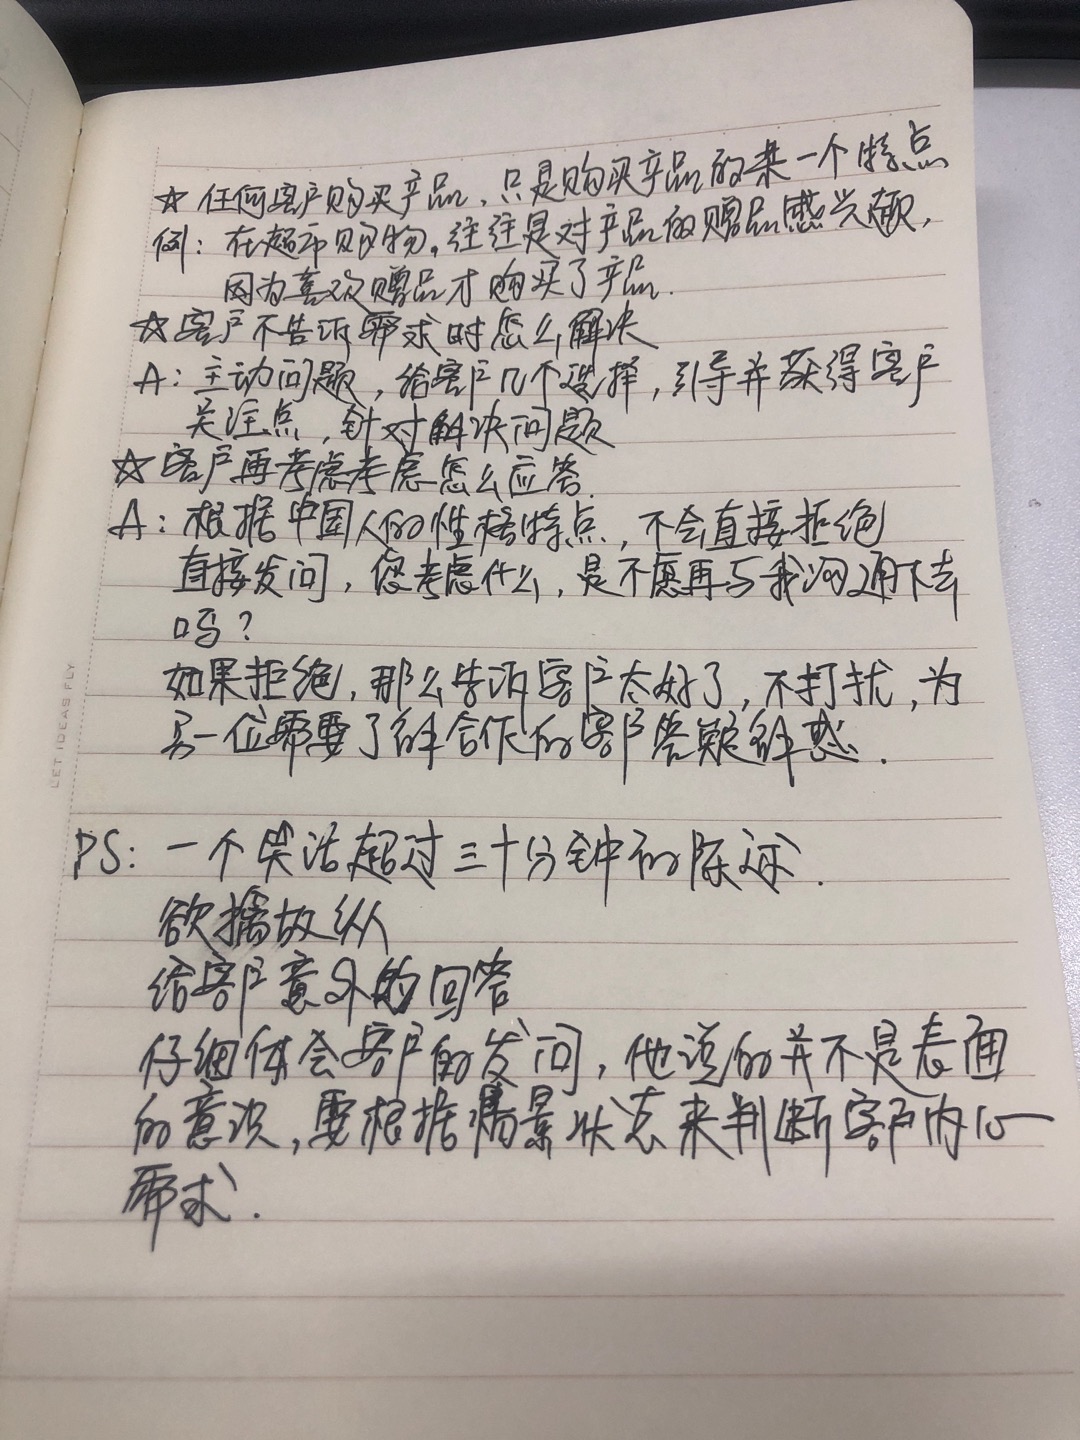 ☆ 任何客户购买产品、只是购买产品的某一个特点
例：在超市购物。往往是对产品的赠品感兴趣，
因为喜欢赠品才购买了产品.
☆客户不告诉需求时怎么解决
A：主动问题，给客户几个选择，引导并获得客户
关注点，针对解决问题
☆客户再考虑考虑怎么应答.
A：根据中国人的性格特点，不会直接拒绝
直接发问，您考虑什么，是不愿再与我沟通下去
吗？
如果拒绝，那么告诉客户太好了，不打扰，为
另一位需要了解合作的客户答疑解惑.
PS：一个笑话超过三十分钟的陈述.
欲擒故纵
给客户意外的回答
仔细体会客户的发问，他说的并不是表面
的意识，要根据情景状态来判断客户内心
需求.
LET IDEAS FLY